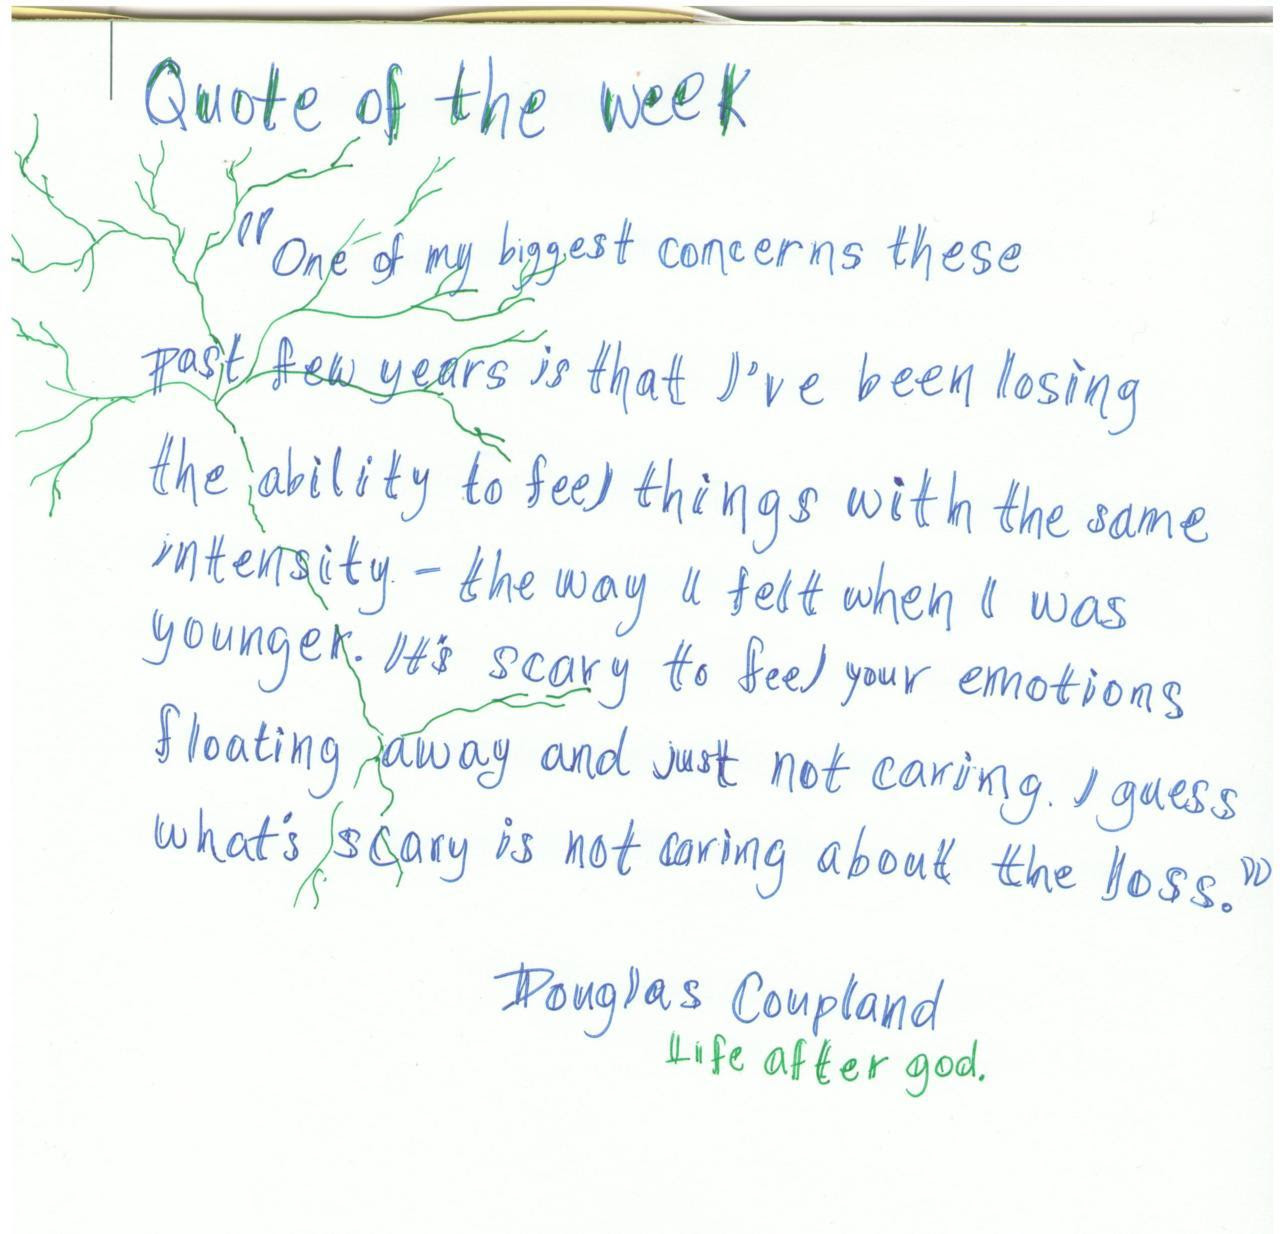 Quote of the week
"One of my biggest concerns these
past few years is that I've been losing
the ability to feel things with the same
intensity - the way I felt when I was
younger. It's scary to feel your emotions
floating away and just not caring. I guess
what's scary is not caring about the loss."
Douglas Coupland
Life after god.